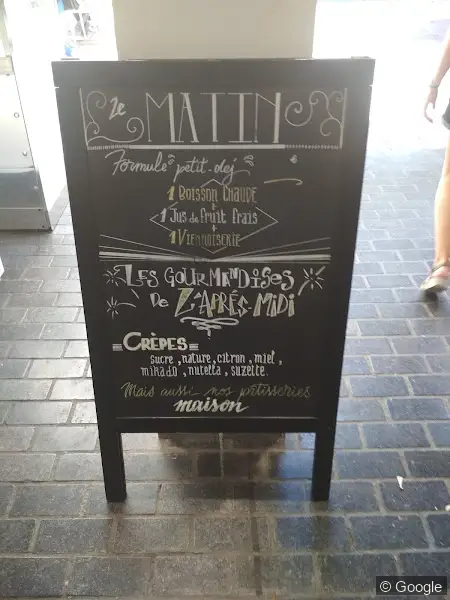 Le MATIN
Formule petit-dej
1 Boisson Chaude
+
1 Jus de fruit frais
+
1 Viennoiserie
Les Gourmandises
De L'Après Midi
Crèpes
sucre, nature, citron, miel,
mikado, nutella, suzette.
Mais aussi nos pâtisseries
maison
© Google